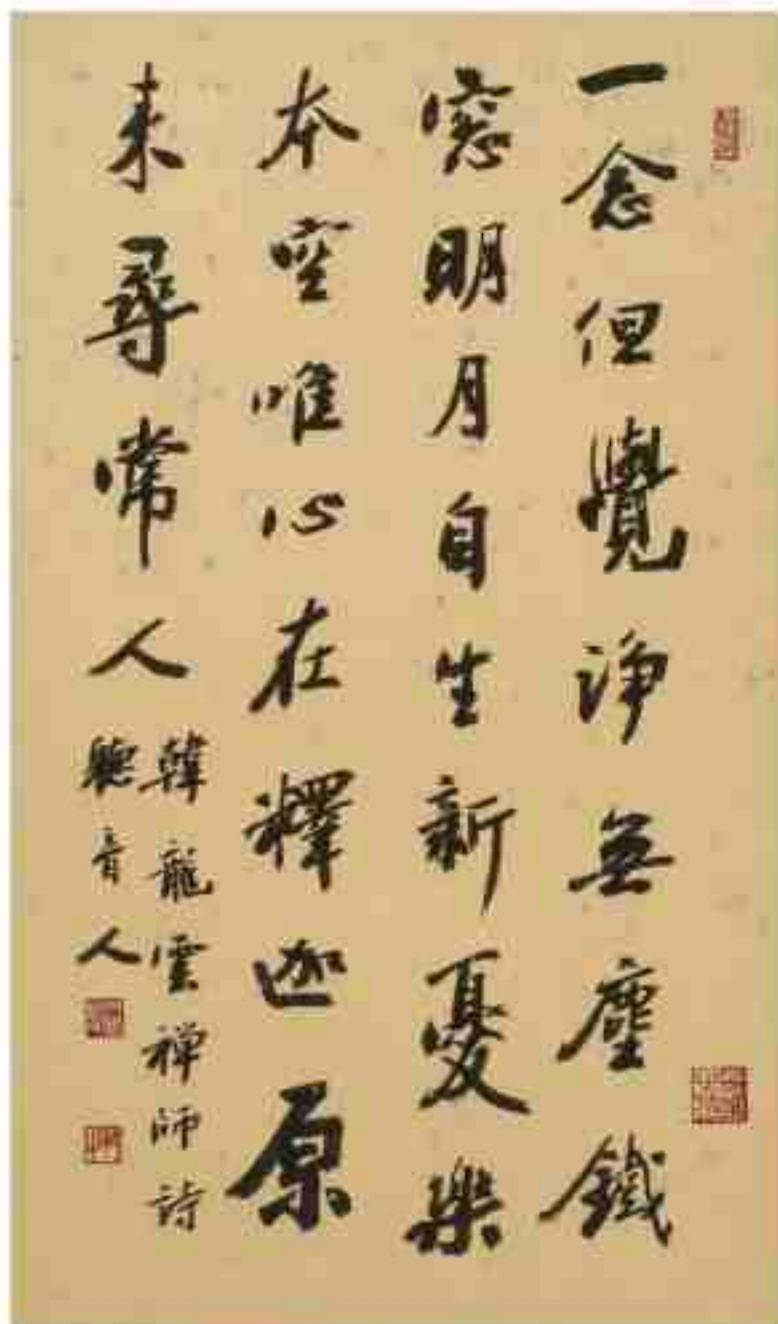 一念但覺净無塵鐵
窓明月自生新憂樂
本空唯心在釋迦原
来尋常人
韓龍雲禅師詩
聽音人